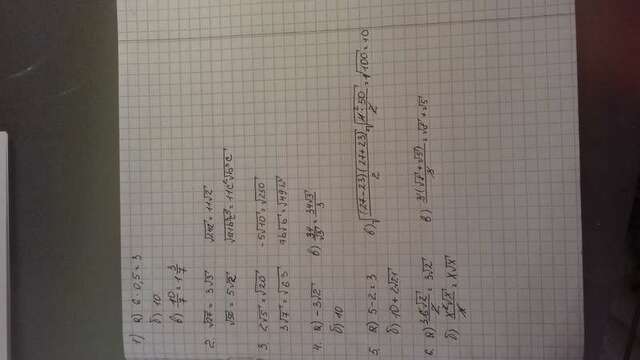 1) а) 6 · 0,5 = 3
б) 10
в) 10/7 = 1 3/7
2. √27 = 3√3 √242 = 11√2
√50 = 5√2
3. 2√5 = √20 -5√10 = √250
3√7 = √63
4. а) -3√2 в) 34/√3 = 34√3/3
б) 10
5. а) 5-2 = 3 в) √((27-23)(27+23)/2) √(4·50/2) = √100 = 10
б) 10 + 2√21
6. а) 3,6√2/2 = 3√2 в) 3(√8 + √5)/3 = √8 + √5
б) x²√x/x = x√x